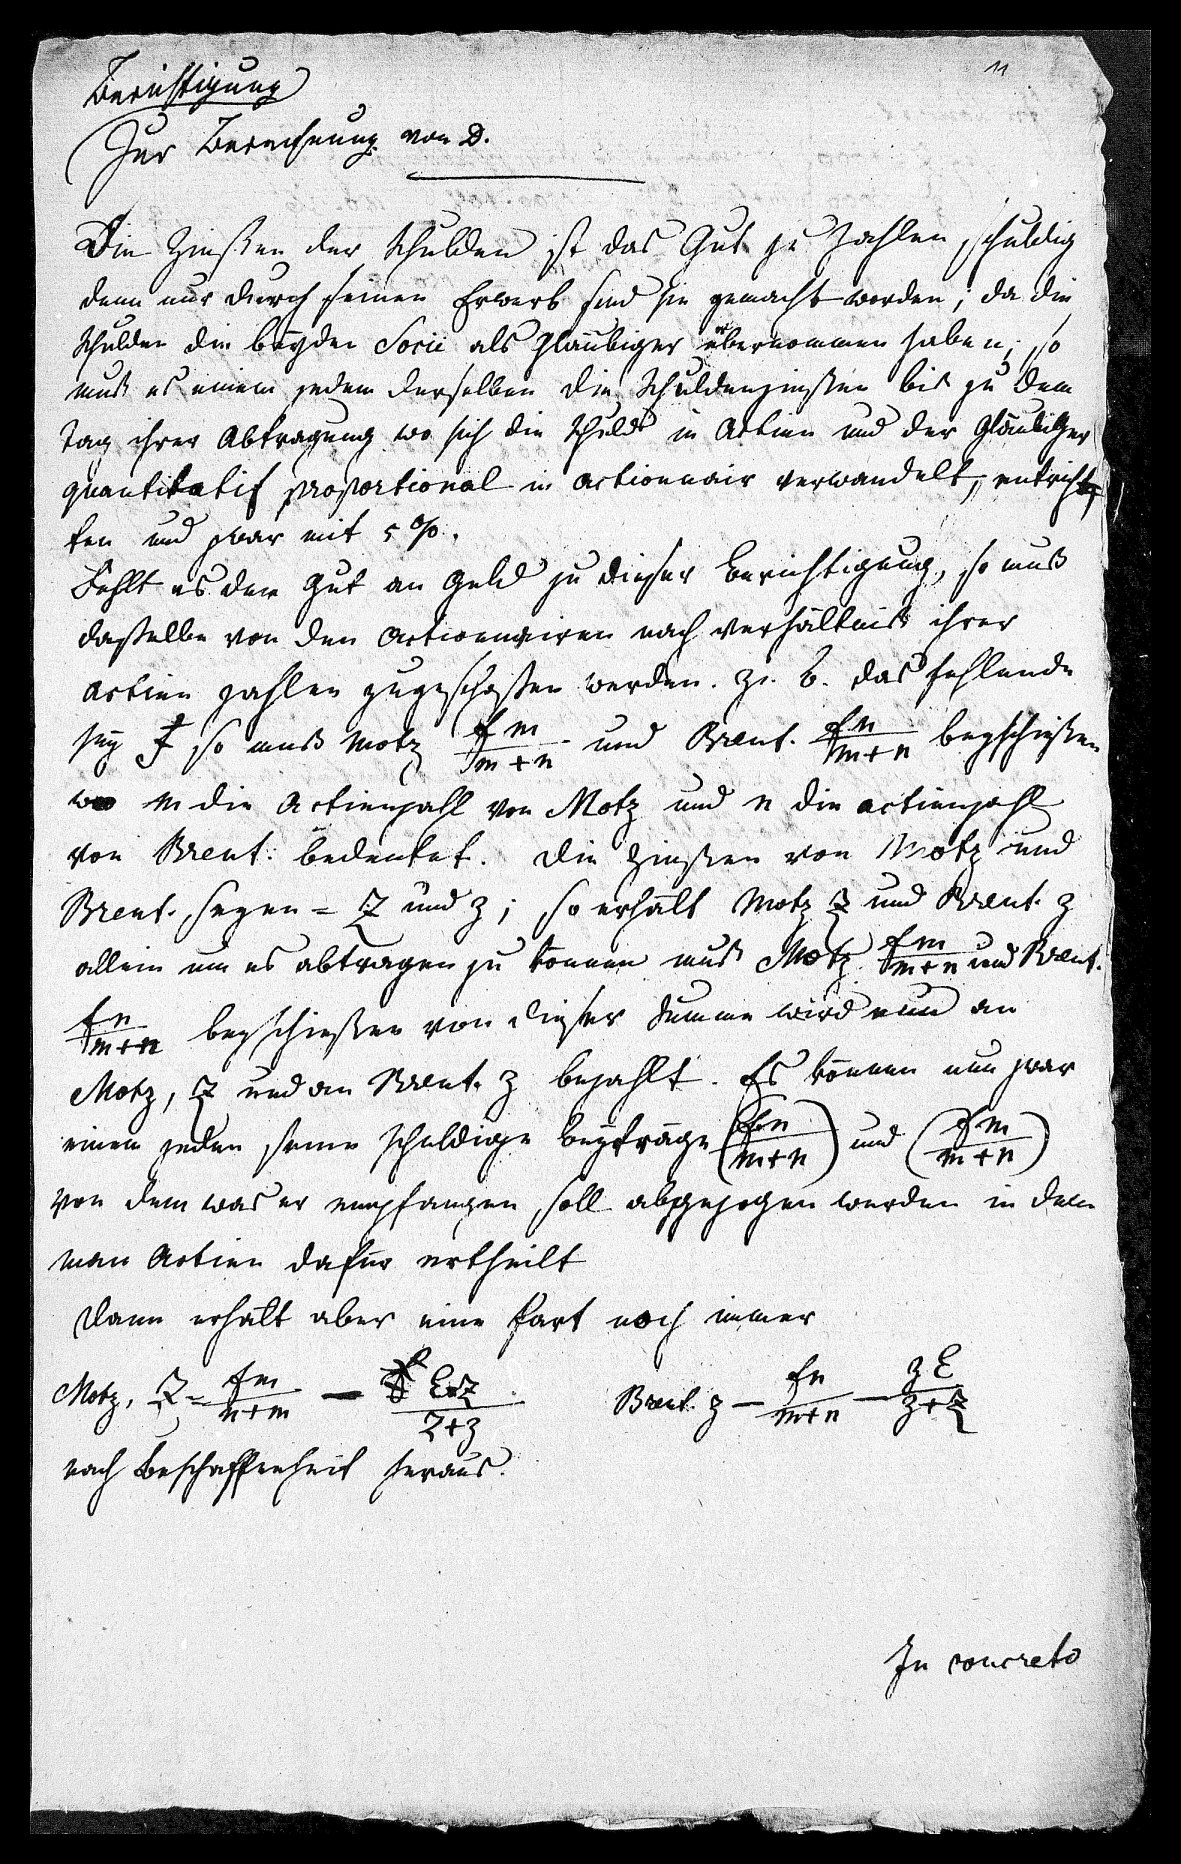 11
Berichtigung
Zur Berechnung von D.
Die Zinßen der Schulden ist das Gut zu zahlen schuldig
denn nur durch seinen Erwerb sind sie gemacht worden; da die
Schulden die beyden Socii als Gläubiger übernommen haben; so
muß es einem jeden derselben die Schuldenzinßen bis zu dem
Tag ihrer Abtragung wo sich die Schuld in Actien und der Gläubiger
quantitatif proportional in Actionnair verwandelt, entrich-
ten und zwar mit 5 %.
Fehlt es dem Gut an Geld zu dieser Berichtigung, so muß
dasselbe von den Actionnairen nach Verhältniß ihrer
Actien zahlen zugeschoßen werden. Z. B. das fehlende
sey f so muß Motz fm/m+n und Brent. fn/m+n beyschießen
wo m die Actienzahl von Motz und n die Actienzahl
von Brent. bedeutet. Die Zinßen von Motz und
Brent. seyen = Z und z; so erhält Motz Z und Brent. z
allein um es abtragen zu können muß Motz fm/m+n und Brent.
fn/m+n beyschießen von dieser Summe wird nun an
Motz, Z und an Brent. z bezahlt. Es können nun zwar
einem jeden seine schuldige beyträge (fn/m+n) und (fm/m+n)
von dem was er empfangen soll abgezogen werden in dem
man Actien dafür ertheilt
Dann erhält aber eine Part noch immer
Motz, Z - fm/n+m — EZ/Z+z Brent. z — fn/m+n — zE/z+Z
nach Beschaffenheit heraus.
In concreto